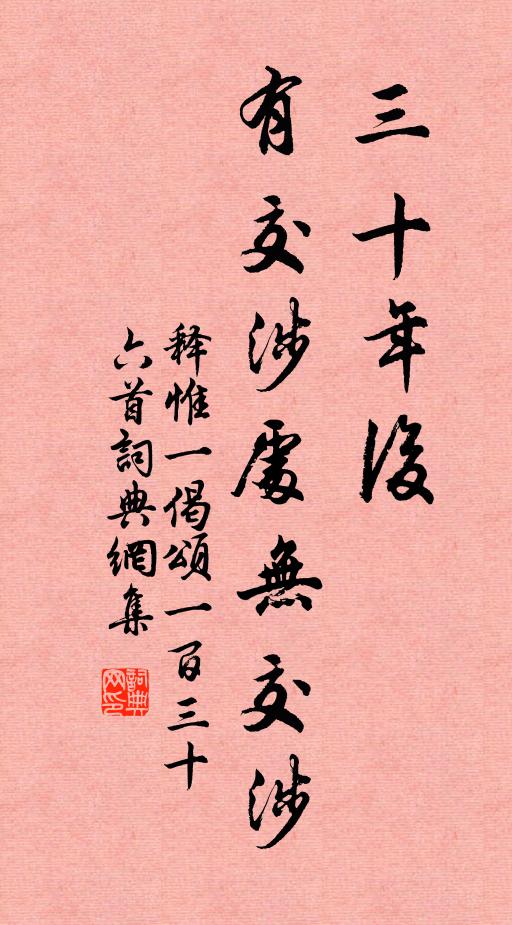 三十年後
有交涉處無交涉
释惟一偈頌一百三十
六首詞典網集
詞典网印